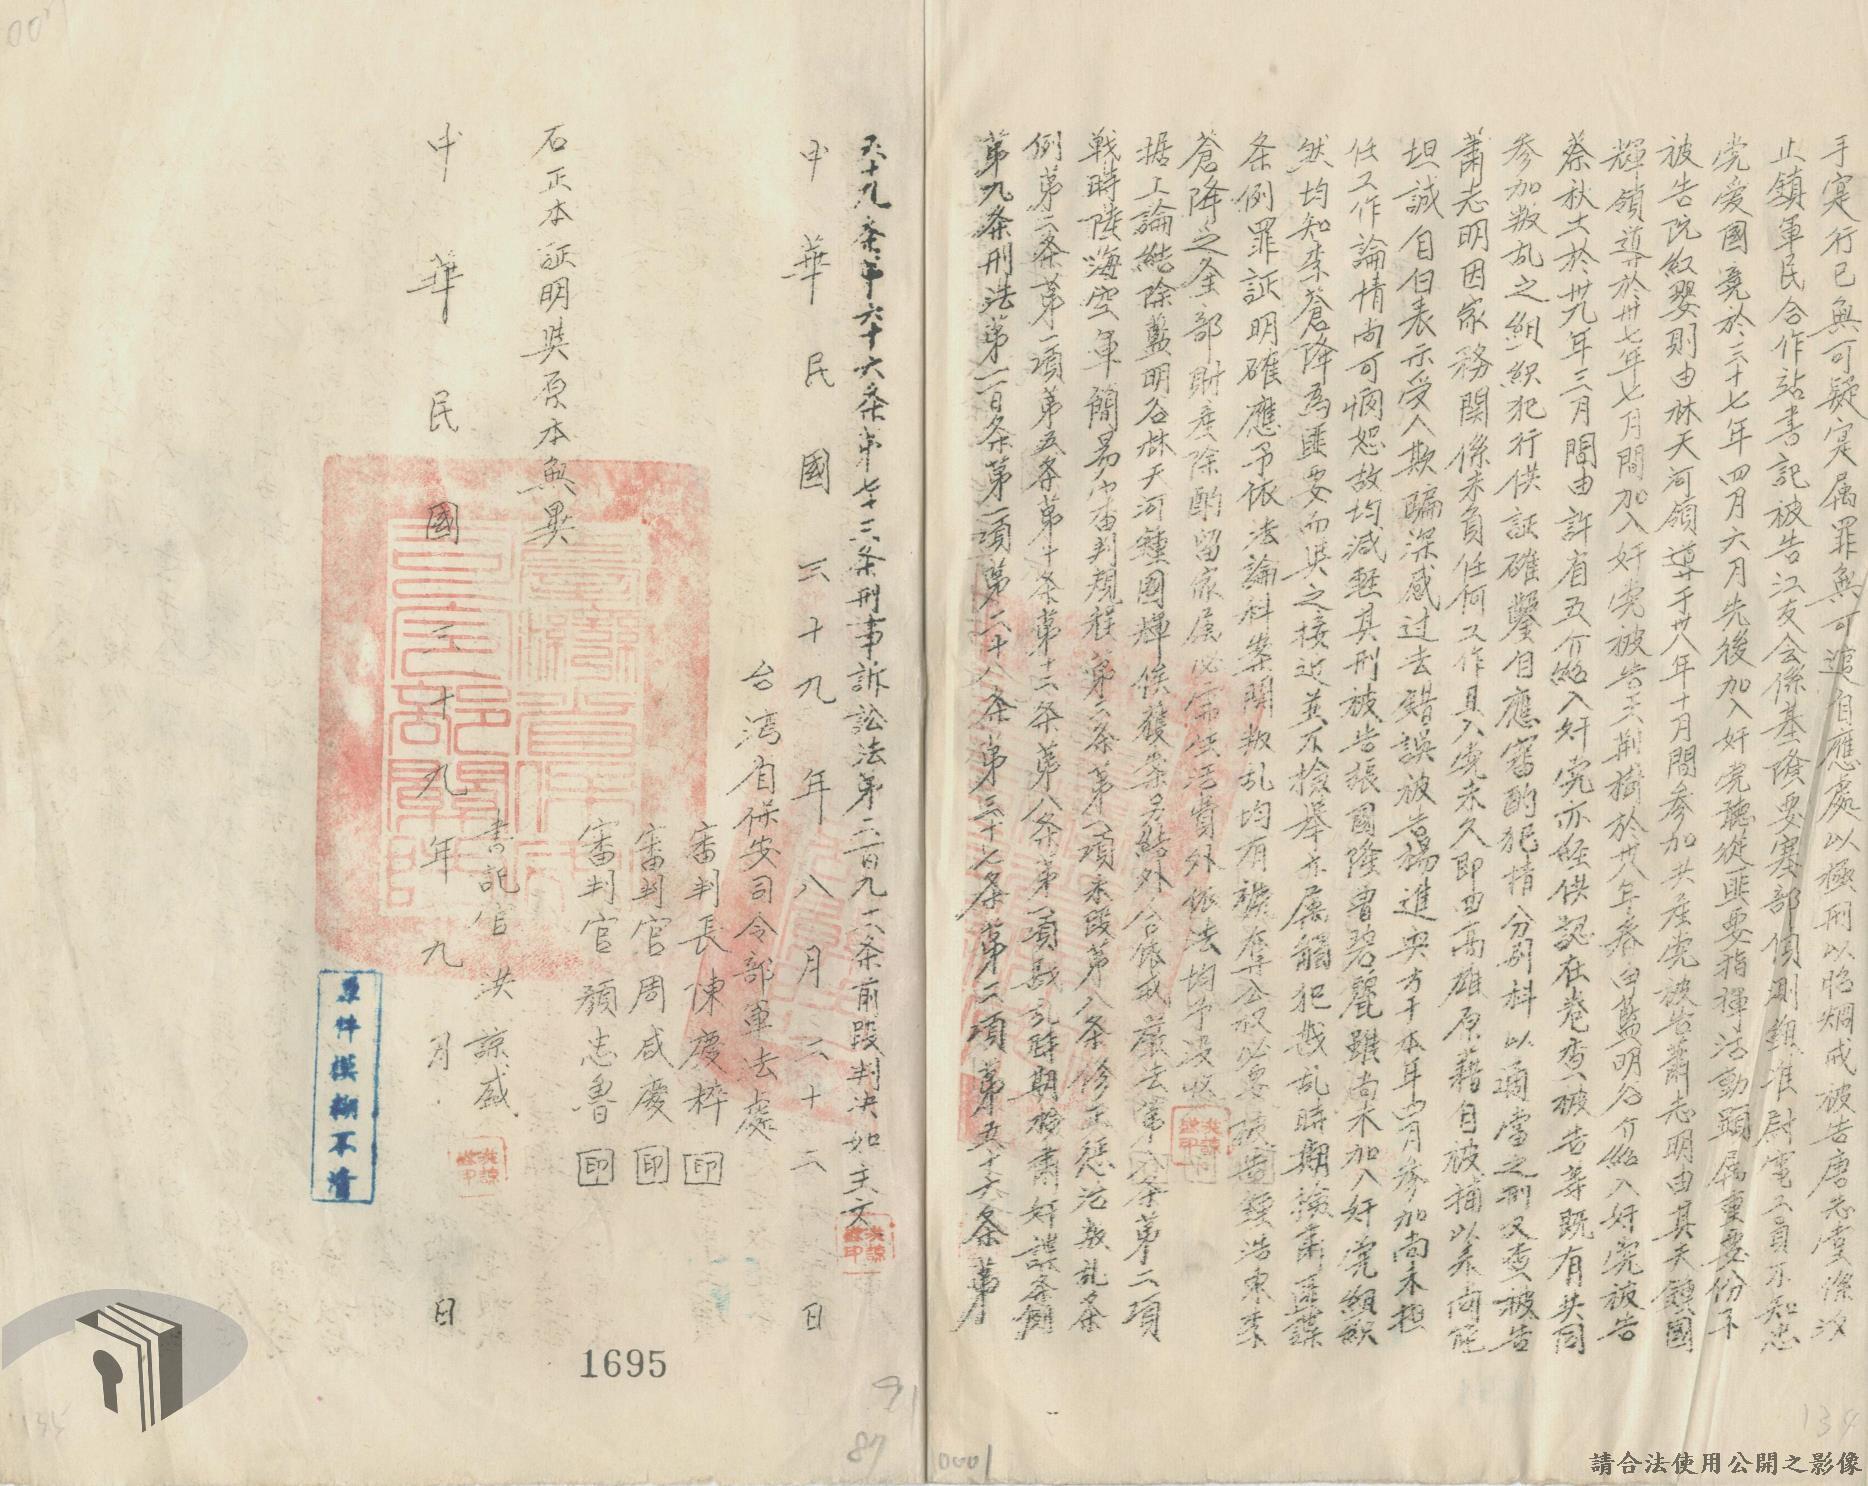 手寔行已無可疑寔属罪無可逭自應處以極刑以昭烱戒被告唐志堂係汐
止鎮軍民合作站書記被告江友会係基隆要塞部偵測隊准尉電工員不知忠
党爱國竟於三十七年四月六月先後加入奸党聽從匪要指揮活動顕属重要份子
被告阮紅嬰則由林天河領導于卅八年十月間参加共産党被告蕭志明由其天鍾國
輝領導於卅七年七月間加入奸党被告王荆樹於卅八年春由藍明谷介紹入奸党被告
蔡秋土於卅九年三月間由許省五介紹入奸党亦經供認在卷查被告等既有共同
参加叛乱之組織犯行供証確鑿自應審酌犯情分别科以適當之刑又查被告
蕭志明因家務関係未負任何工作且入党未久即由高雄原藉自被捕以来尚能
坦誠自白表示受人欺騙深感过去錯誤被告楊進興方于本年四月参加尚未担
任工作論情尚可憫恕故均減輕其刑被告張國隆曹碧麗雖尚未加入奸党組織
然均知李蒼降爲匪要而與之接近并不檢舉亦属觸犯戡乱時期檢肅匪諜
条例罪証明確應予依法論科案関叛乱均有褫奪公权必要 鍾浩東李
蒼降之全部財産除酌留家属必需生活費外依法均予沒收
据上論結除藍明谷林天河鍾國輝俟獲案另結外合依戒嚴法第八条第二項
戰時陸海空軍簡易审判規程第二条第一項末段第八条修正惩治叛乱条
例第二条第一項第五条第十条第十二条第八条第一項戡乱時期檢肅奸諜条例
第九条刑法第二百条第二項第二十八条第三十七条第二項第五十六条第
五十九条第六十六条第七十三条刑事訴訟法第二百九十二条前段判决如主文
中華民國三十九年八月二十三日
台湾省保安司令部軍法處
審判長陳慶粹 印
審判官周咸慶 印
審判官顏忠魯 印
右正本証明與原本無異
書記官洪諒盛
中華民國三十九年九月 日
原件模糊不清
1695
91
87
134
請合法使用公開之影像